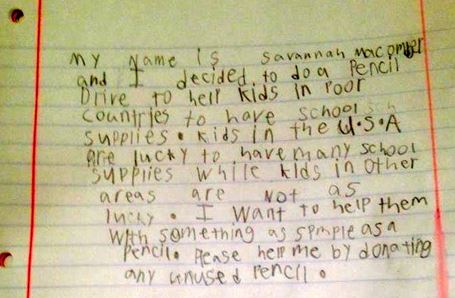 My Name is Savannah Macomber
and I decided to do a Pencil
Drive to help kids in poor
Countries to have school
supplies. kids in the U.S.A
are lucky to have many school
supplies while kids in other
areas are Not as
lucky. I want to help them
With something as simple as a
Pencil. Please help me by donating
any unused Pencil.